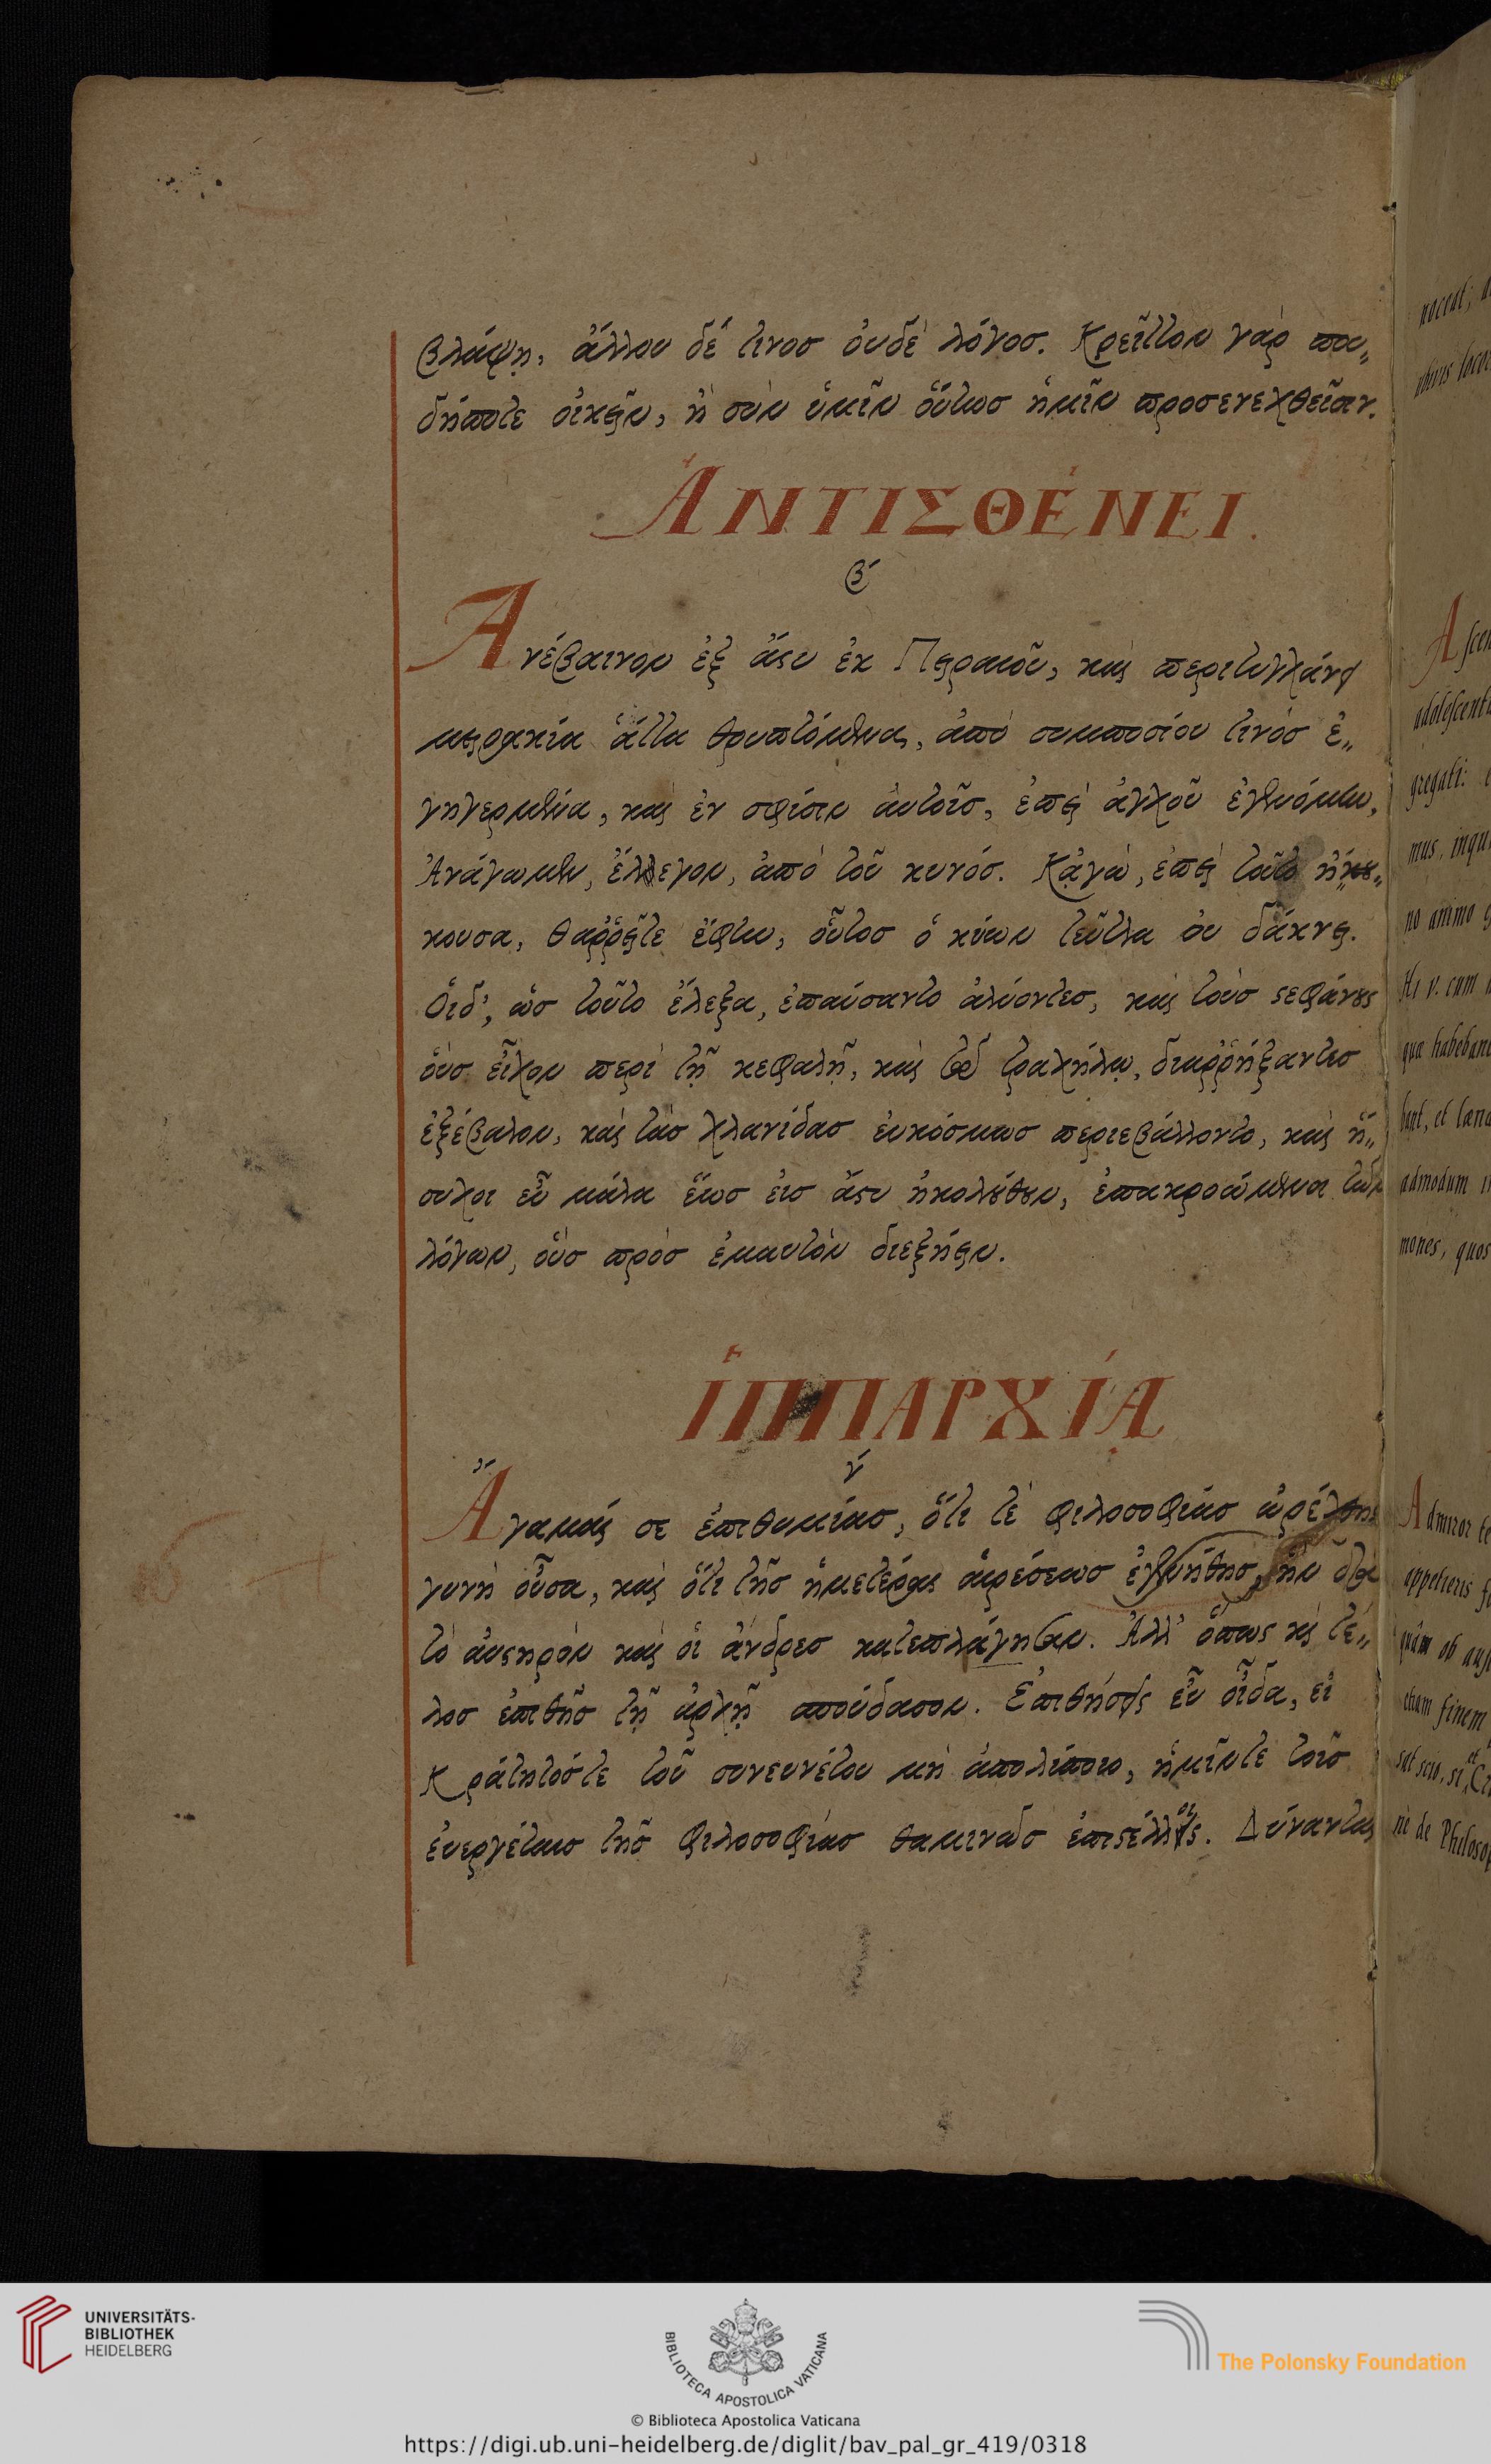 βλάψῃ, ἄλλου δέ τινοσ ὀυδὲ λόγοσ. Κρεῖττον γὰρ που„
δήποτε οἰκεῖν, ἢ σὺν ὑμῖν ὅυτωσ ἡμῖν προσενεχθεῖσιν.
ἈΝΤΙΣΘΈΝΕΙ.
β΄
Ανέβαινον ἐξ ἄϛυ ἐκ Πειραιοῦ, καὶ περιτυγχάνει
μειρακία ἅττα θρυπτόμενα, ἀπὸ συμποσίου τινὸσ ἐ„
γηγερμένα, καὶ ἐν σφίσιν ἀυτοῖσ, ἐπεὶ ἀγχοῦ ἐγενόμην,
Ἀνάγωμεν, ἔλλεγον, ἀπὸ τοῦ κυνόσ. Κἀγὼ, ἐπεὶ τοῦτο ἤ„
κουσα, θαῤῥεῖτε ἔφην, ὅυτοσ ὁ κύων τεῦτλα ὀυ δάκνει.
Ὁιδ', ὡσ τοῦτο ἔλεξα, ἐπαύσαντο ἀλύοντεσ, καὶ τοὺσ ϛεφάνους
ὁὺσ εἶχον περὶ τῇ κεφαλῇ, καὶ τῷ τραχήλῳ, διαῤῥήξαντεσ
ἐξέβαλον, καὶ τὰσ χλανίδασ ἐυκόσμωσ περιεβάλλοντο, καὶ ἥ„
συχοι εὖ μάλα ἕωσ ἐισ ἄϛυ ἠκολούθουν, ἐπακροώμενοι τῶν
λόγων, ὁὺσ πρὸσ ἐμαυτὸν διεξῄειν.
ἹΠΠΑΡΧΊᾼ
γ΄
Ἄγαμαί σε ἐπιθυμίασ, ὅτι τὲ φιλοσοφίασ ὠρέχθης
γυνὴ οὖσα, καὶ ὅτι τῆσ ἡμετέρας ἁιρέσεωσ ἐγενήθησ, ἣν διὰ
τὸ ἀυϛηρὸν καὶ ὁι ἄνδρεσ κατεπλάγησαν. Ἀλλ' ὅπως καὶ τέ„
λοσ ἐπιθῇσ τῇ ἀρχῇ σπούδασον. Ἐπιθήσεις εὖ οἶδα, εἰ
Κράτητόστε τοῦ συνευνέτου μὴ ἀπολίποιο, ἡμῖντε τοῖσ
ἐυεργέταισ τῆσ φιλοσοφίασ θαμινῶσ ἐπιϛέλλοις. Δύνανται
Adolescent
gregati:
mus, inqui
Hi v. cum
qua habeban
admodum
mones, quos
Admiror te
appetieris
quam ob
etiam finem
sat scio, si
de Philoso
UNIVERSITÄTS-
BIBLIOTHEK
HEIDELBERG
BIBLIOTECA APOSTOLICA VATICANA
The Polonsky Foundation
© Biblioteca Apostolica Vaticana
https://digi.ub.uni-heidelberg.de/diglit/bav_pal_gr_419/0318